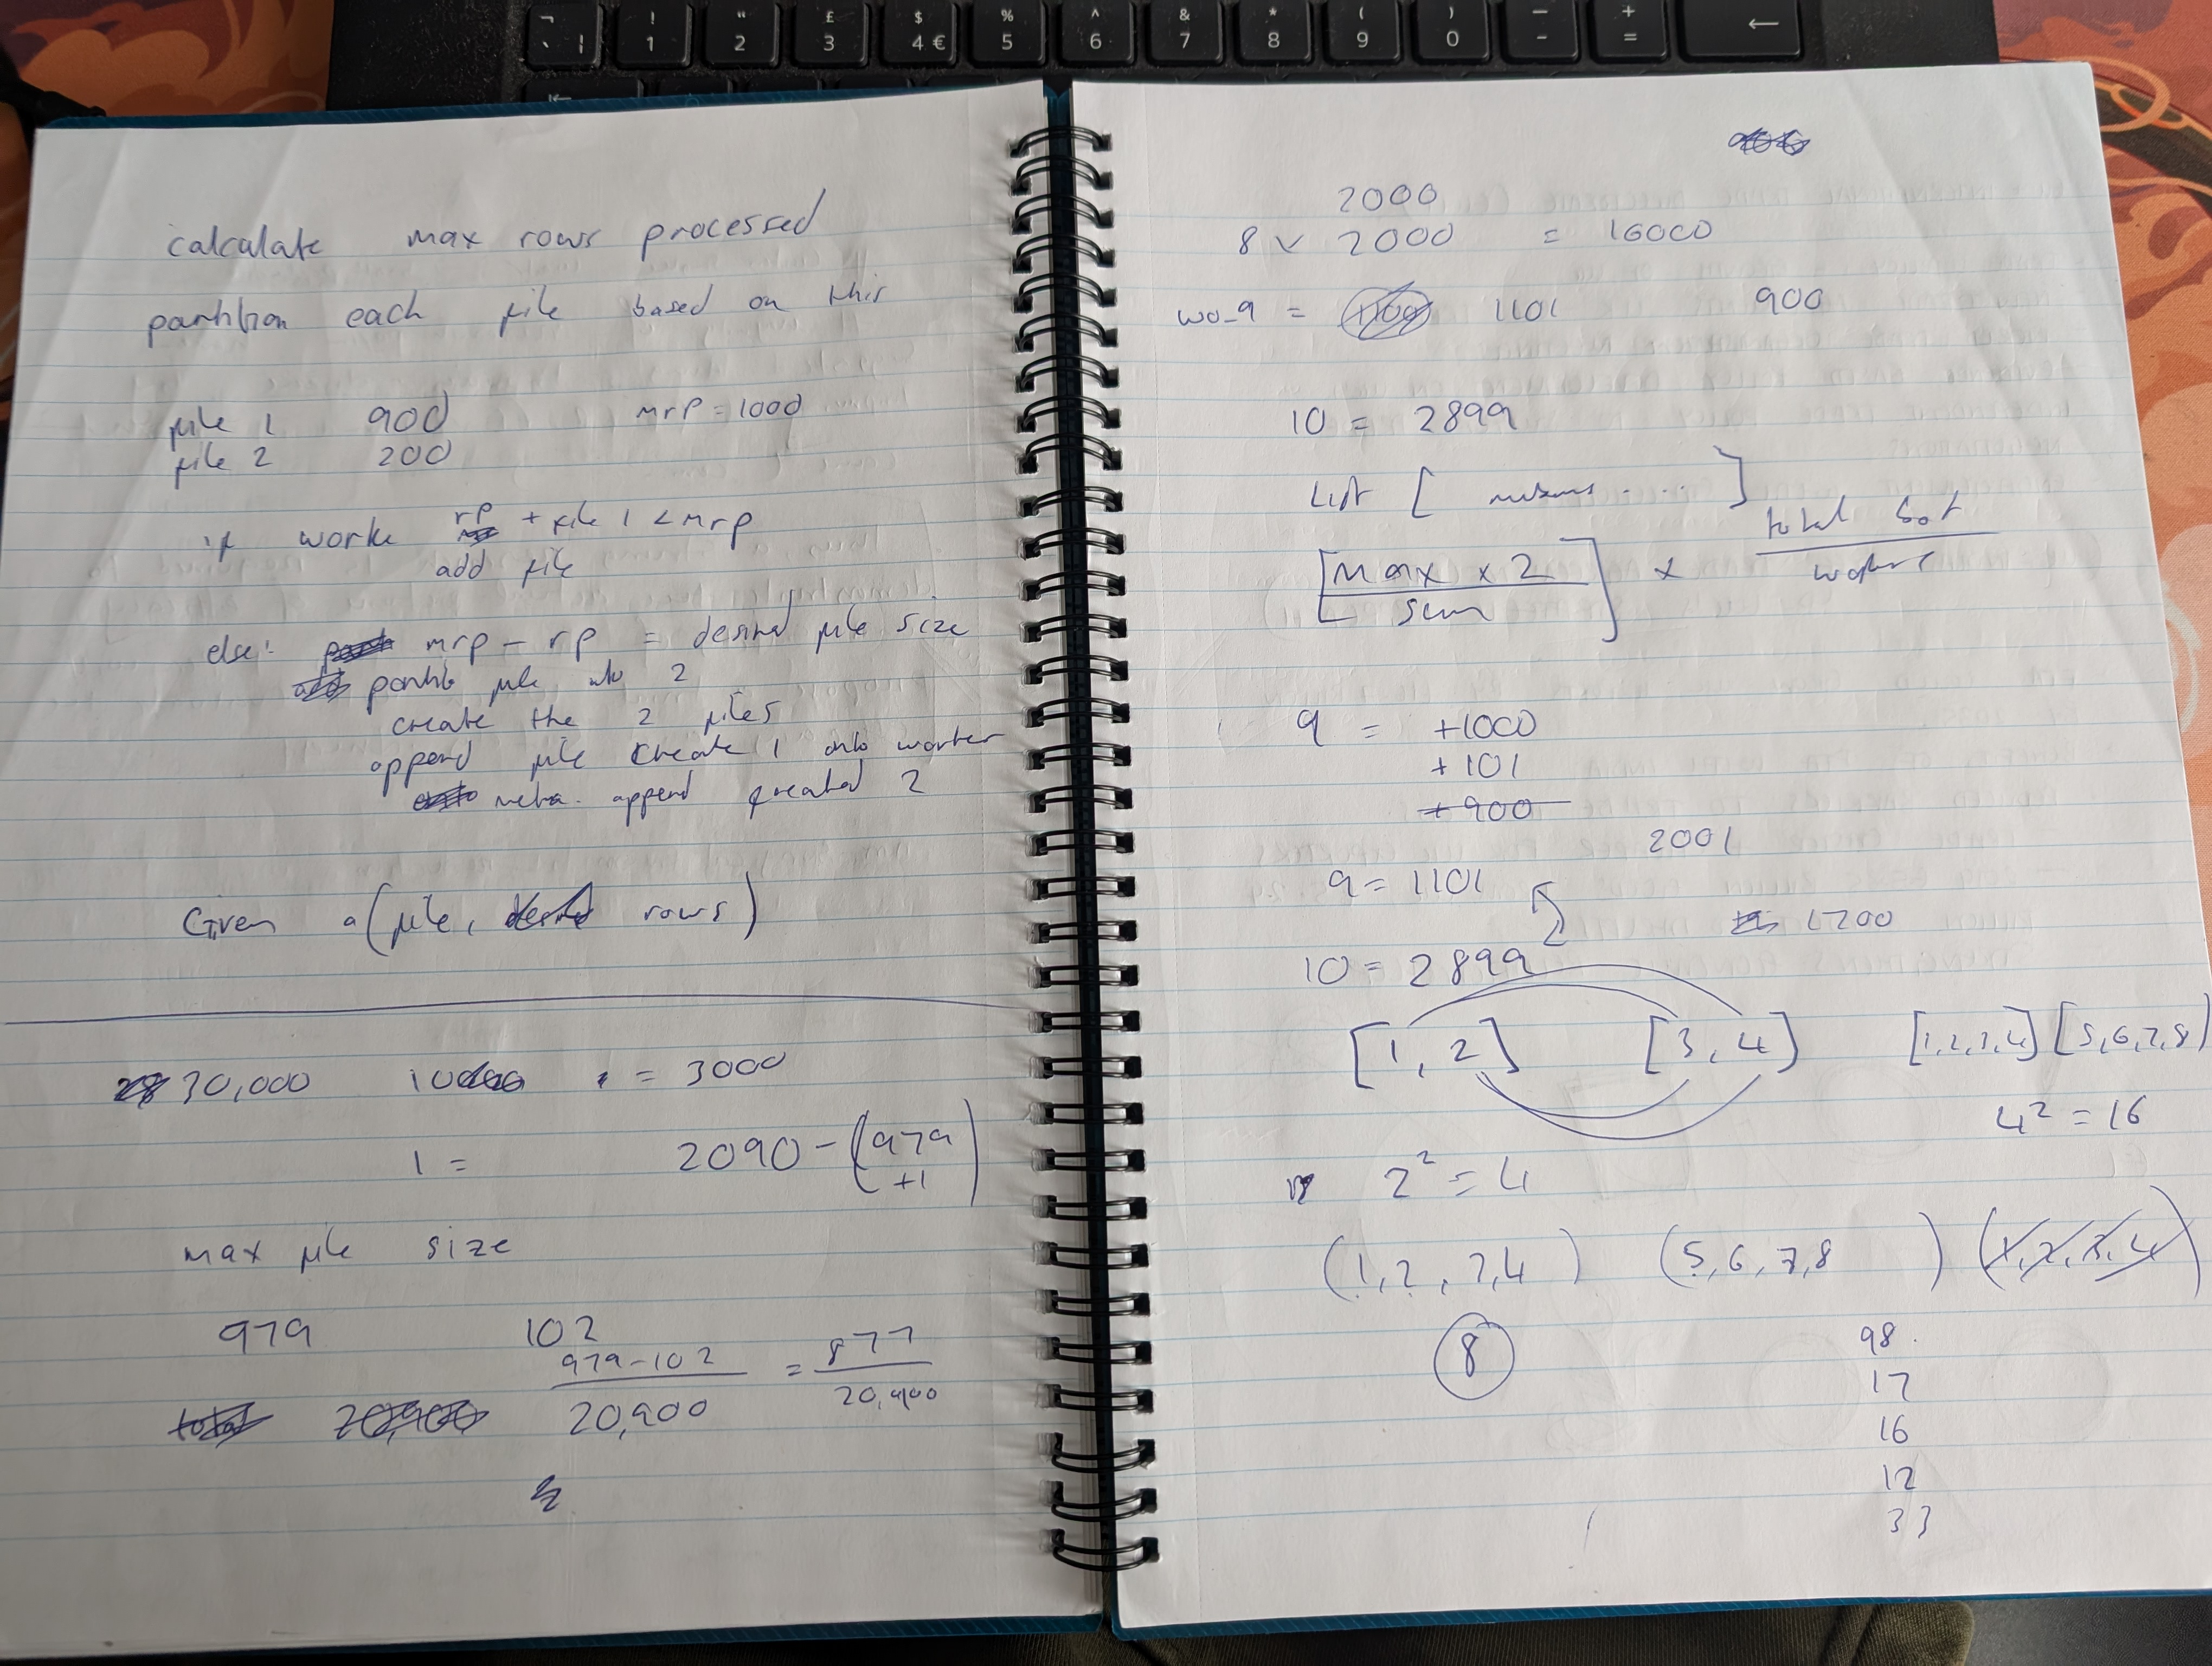 calculate max rows processed
partition each file based on this
file 1 900 mrp = 1000
file 2 200
if worke rp + file 1 < mrp
add file
else: mrp - rp = desired file size
file into 2
create the 2 files
append file create 1 onto worker
append created 2
Given a (file, rows)
30,000 10 = 3000
1 = 2090 - (979 +1)
max file size
979 102
979-102 / 20,900 = 877 / 20,900
total 20,900
2000
8 × 2000 = 16000
wo_9 = 1101 900
10 = 2899
List [ .... ]
[max × 2 / sum] × total / 
9 = +1000
+ 101
+ 900
2001
9 = 1101
1200
10 = 2899
[1, 2] [3, 4] [1,2,3,4] [5,6,7,8]
4² = 16
2² = 4
(1,2,3,4) (5,6,7,8) (1,2,3,4)
8
98
17
16
12
33
¬ ! " £ $ % ^ & * ( ) _ +
` ¦ 1 2 3 4 € 5 6 7 8 9 0 - = ←